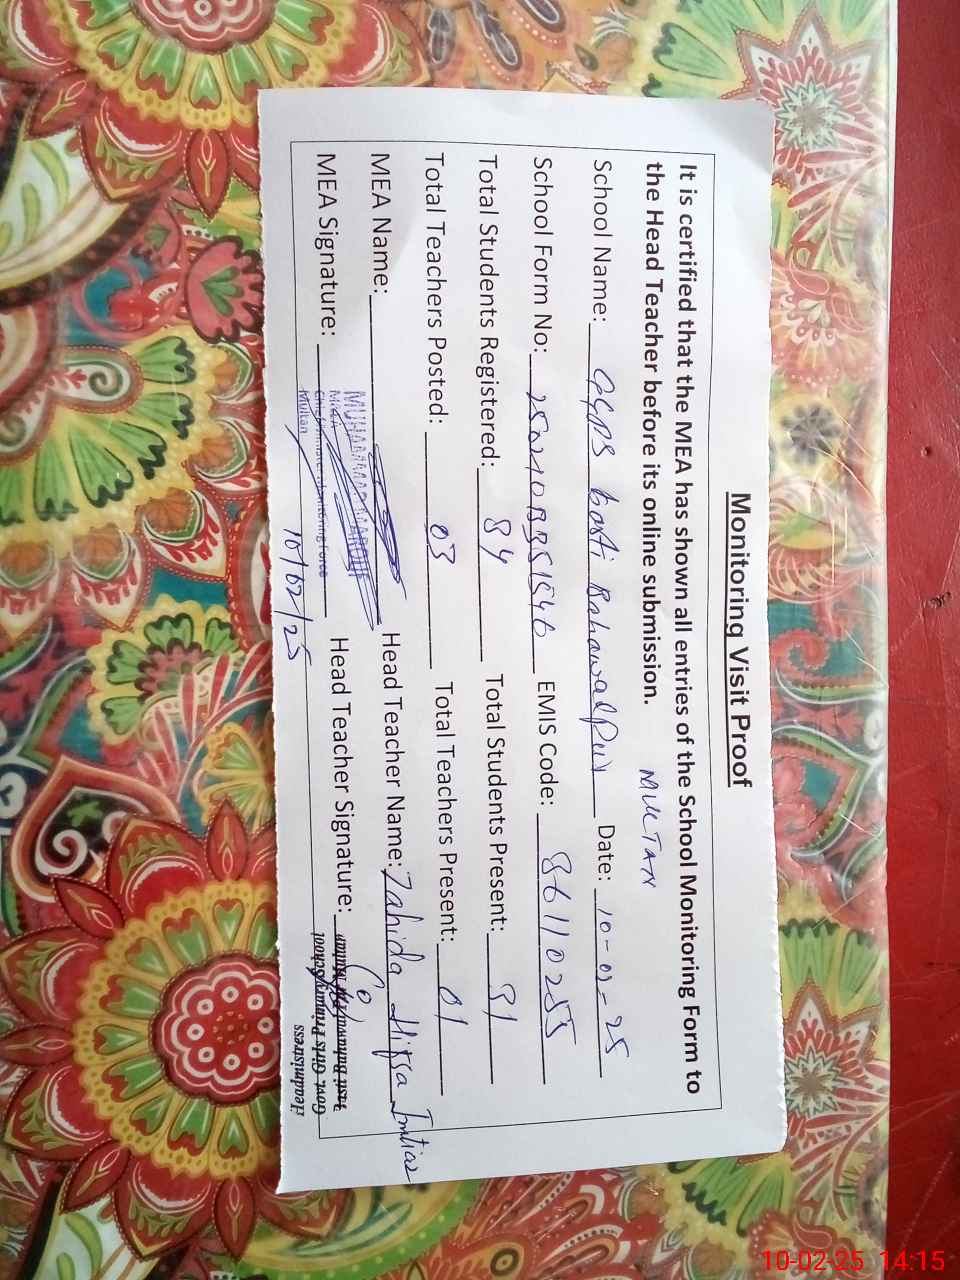 Monitoring Visit Proof
It is certified that the MEA has shown all entries of the School Monitoring Form to
the Head Teacher before its online submission.
MULTAN
School Name: GGPS basti Bahawalpur Date: 10-02-25
School Form No: EMIS Code: 36110255
Total Students Registered: 84 Total Students Present: 81
Total Teachers Posted: 03 Total Teachers Present: 01
MEA Name: Head Teacher Name: Zahida Imtiaz
MEA Signature: Head Teacher Signature:
MEA
Chief Minister Monitoring Force
Multan
10/02/25
Headmistress
Govt. Girls Primary School
10-02-25 14:15